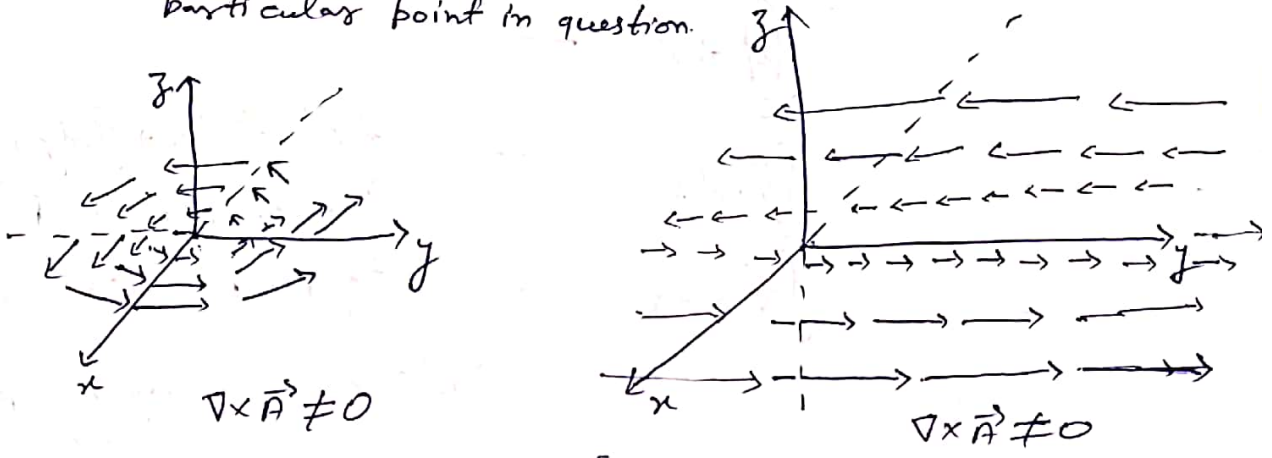 particular point in question.
z
z
y
y
x
x
∇×A⃗ ≠ 0
∇×A⃗ ≠ 0